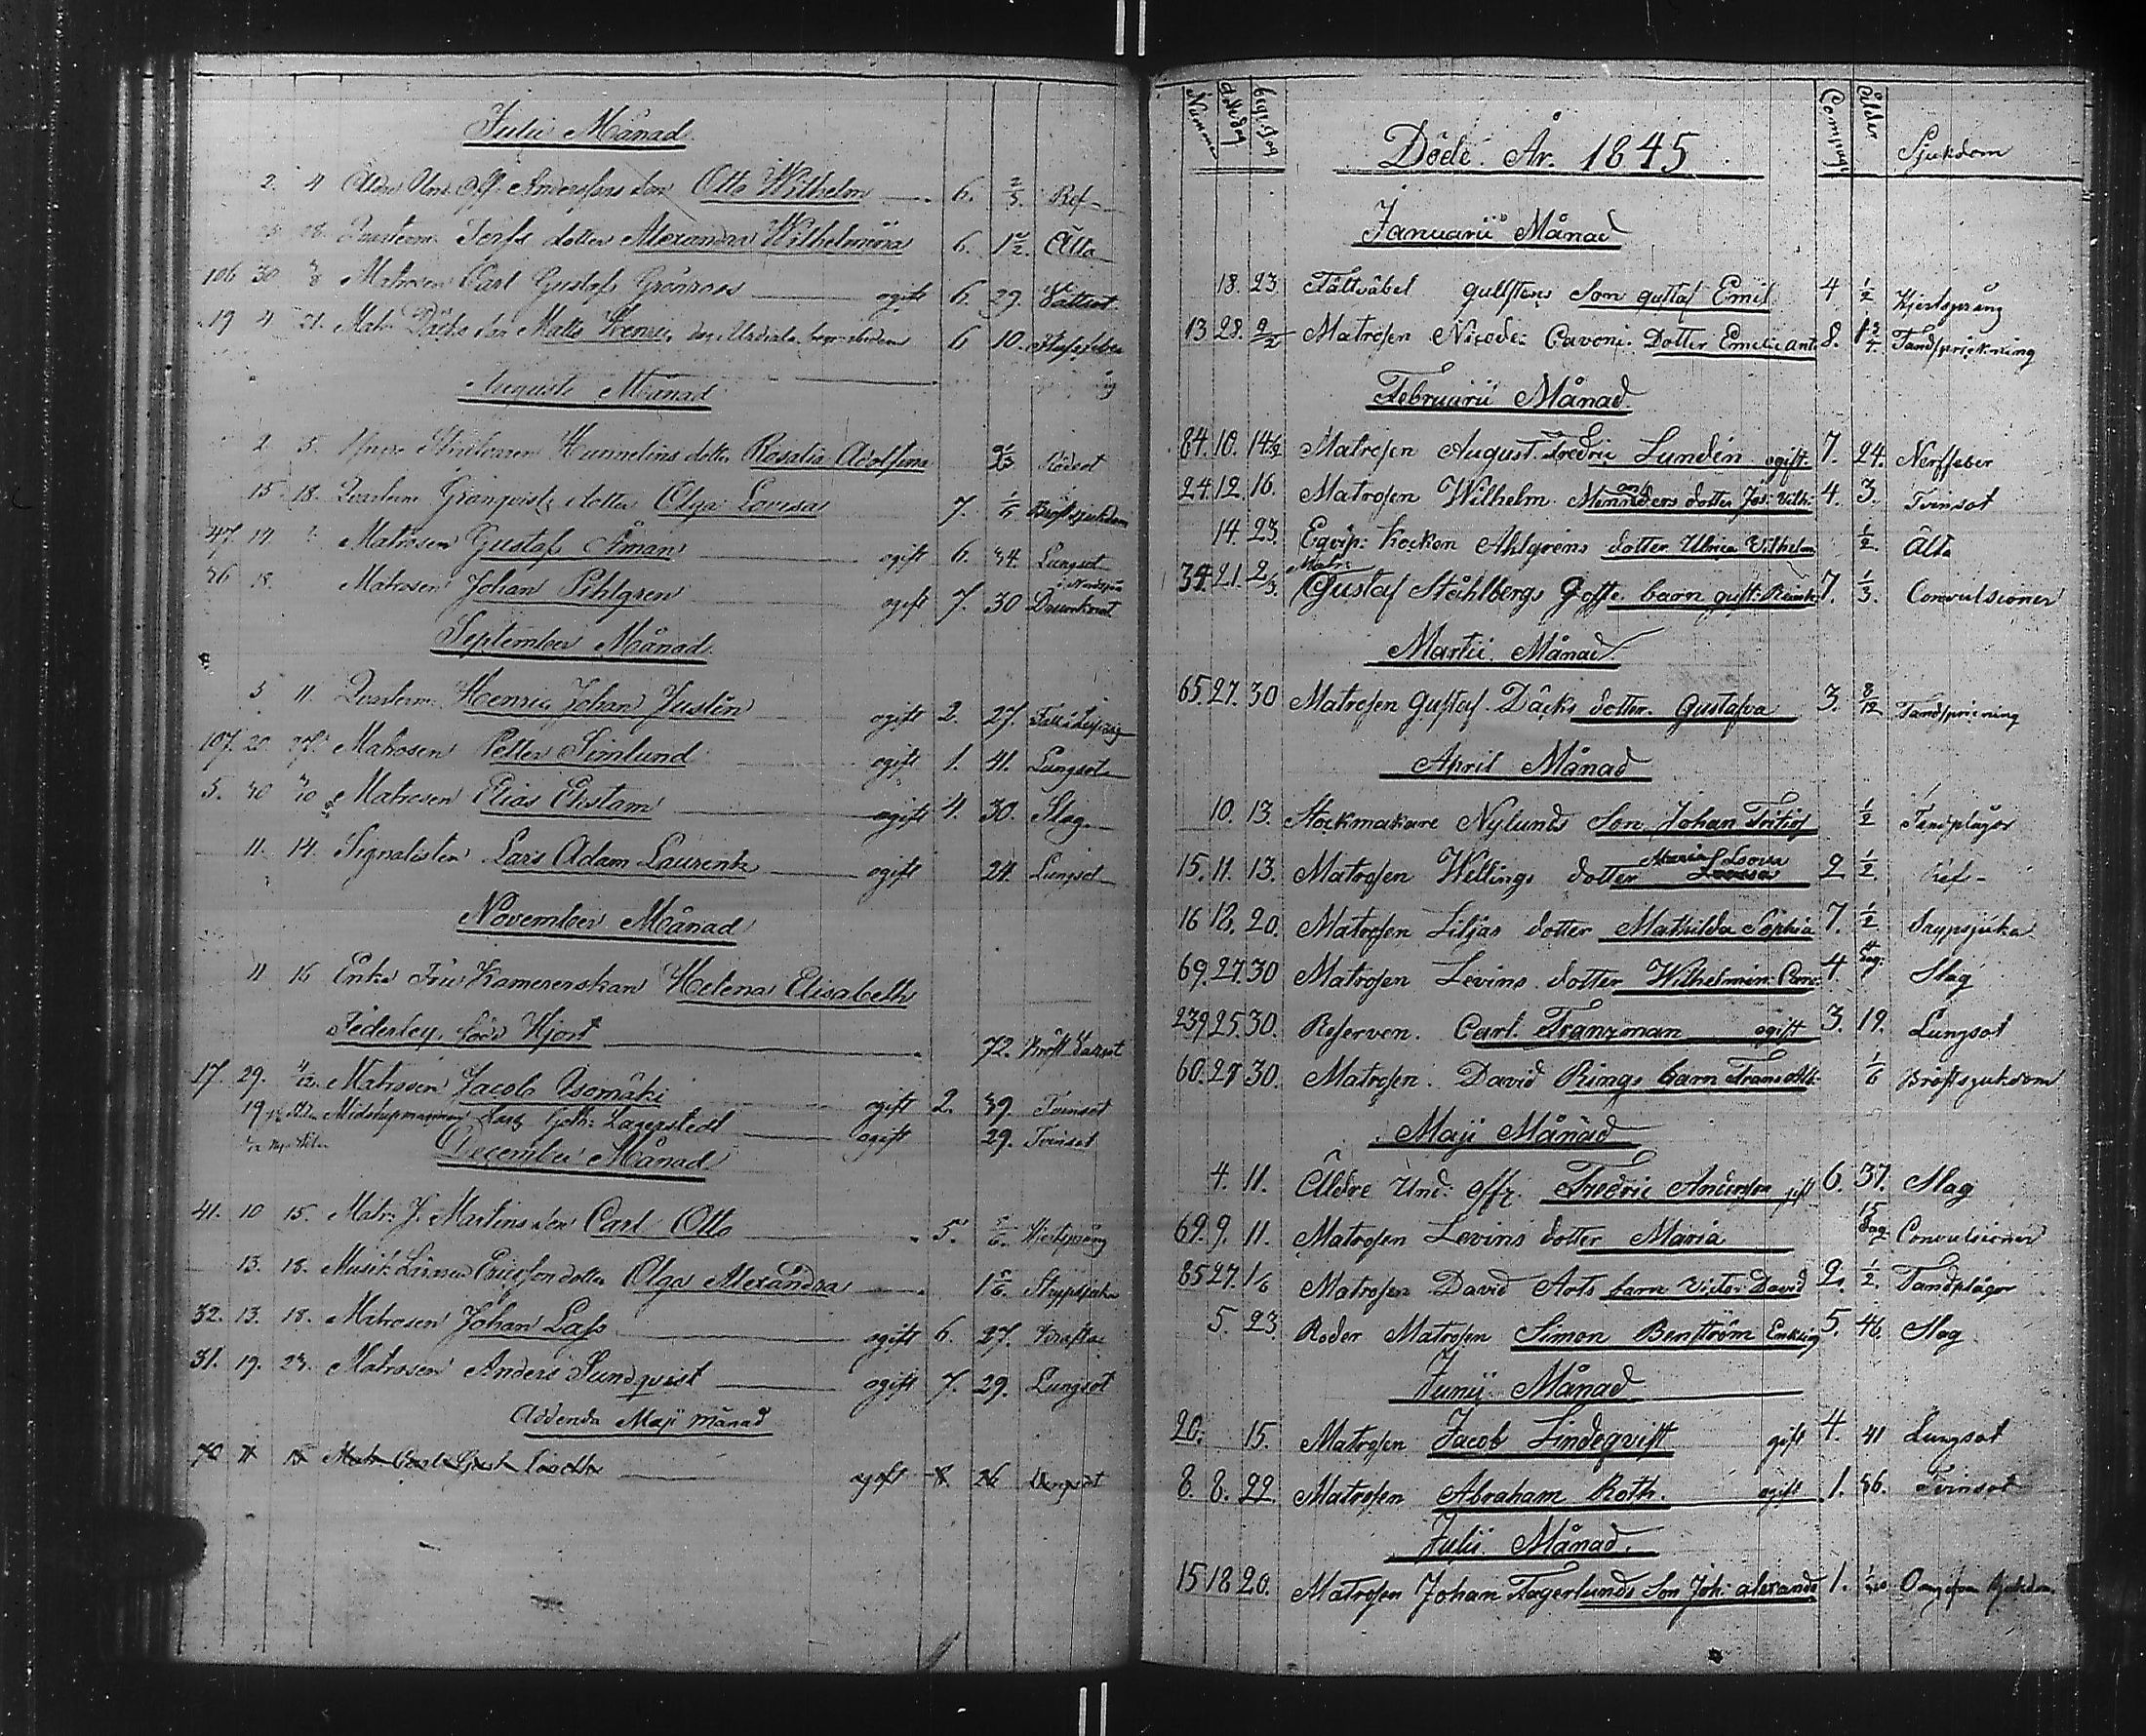 Julii Månad
2. 4 Äldr Und. Off. Anderssons son Otto Wilhelm 6. 2/3. Ref
28. Qvarterm. dotter Alexandra Wilhelmina 6. 1 1/2. Älta
106 30 Matrosen Carl Gustaf Grönroos ogift 6. 29.
19 4 21. Matr. Däcks son Matts Henric 6 10.
Augusti Månad
2 5. dotter Rosalia Adolfina Rödsot
15 18. Qvarterm. Granqvists dotter Olga Lovisa 7. Bröstsjukdom
47. 14 Matrosen Gustaf Åman ogift 6. 34. Lungsot
36 18. Matrosen Johan Pihlgren ogift 7. 30 Drunknat
September Månad
5 11. Qvarterm. Henric Johan Justén ogift 2. 27.
107. 20. Matrosen Petter Simlund ogift 1. 41. Lungsot
5. 30 Matrosen Elias Ekstam ogift 4. 30. Slag
11. 14. Signalisten Lars Adam Laurentz ogift 24. Lungsot
November Månad
11 16 Enke Fru Kamererskan Helena Elisabeth
Federley, född Hjort 72. Bröst
17. 29. 4/12. Matrosen Jacob Isomäki ogift 2. 39. Tvinsot
19 Midshipmannen Lagerstedt ogift 29. Tvinsot
December Månad
41. 10 15. Matr. J. Martins son Carl Otto 5. 5/6. Hjertsprång
13. 18. Musik Ericsson dotter Olga Alexandra 1 5/6. Strypsjuka
32. 13. 18. Matrosen Johan Lass ogift 6. 27.
31. 19. 23. Matrosen Anders Sundqvist ogift 7. 29. Lungsot
Addenda Maji månad
70 11 15 Matr. Carl Gust. ogift 8. 26 Lungsot
Nummer dödsdag begr. dag Compagn Ålder Sjukdom
Döde År 1845
Januarii Månad
18. 23. Fältväbel Gullstens Son Gustaf Emil 4 1/2 Hjertsprång
13 28. 2/2 Matrosen Nicode: Cavoni. Dotter Emelie Ant: 8. 1 3/4. Tandsprickning
Februarii Månad
84. 10. 14/2 Matrosen August Fredric Lundén ogift 7. 24. Nerffeber
24. 12. 16. Matrosen Wilhelm Minnders dotter Jos: Vilh: 4. 3. Tvinsot
14. 23. Eqvip: Kocken Ahlgréns dotter Ulrica Vilhelm 1/2. Älta
34. 21. 2/3. Matr: Gustaf Ståhlbergs barn 7. 1/3. Convulsioner
Martii Månad
65. 27. 30 Matrosen Gustaf Däcks dotter Gustafva 3. 8/12 Tandspricning
April Månad
10. 13. Stockmakare Nylunds Son Johan Fritiof 1/2 Tandplågor
15. 11. 13. Matrosen Wellings dotter Maria Lovisa 2 1/2. Ref
16 18. 20. Matrosen Liljas dotter Mathilda Sophia 7. 1/2. Strypsjuka
69. 27. 30 Matrosen Levins dotter Wilhelmin: Caro: 4 dag: Slag
239 25. 30. Reserven. Carl Franzman ogift 3. 19. Lungsot
60. 27 30. Matrosen. David Rings barn Frans Alb: 1/6 Bröstsjukdom
Maji Månad
4. 11. Äldre Und: offr. Fredric Anderson gift 6. 37. Slag
69. 9. 11. Matrosen Levins dotter Maria 15 dag Convulsioner
85 27. 1/6 Matrosen David Arts barn Victor David 2. 1/2. Tandplågor
5. 23. Roder Matrosen Simon Benström Enkling 5. 46. Slag
Junii Månad
20. 15. Matrosen Jacob Lindeqvist gift 4. 41 Lungsot
8. 8. 22. Matrosen Abraham Roth. ogift 1. 56. Tvinsot
Julii Månad.
15 18 20. Matrosen Johan Fagerlunds Son Joh: alexande 1.